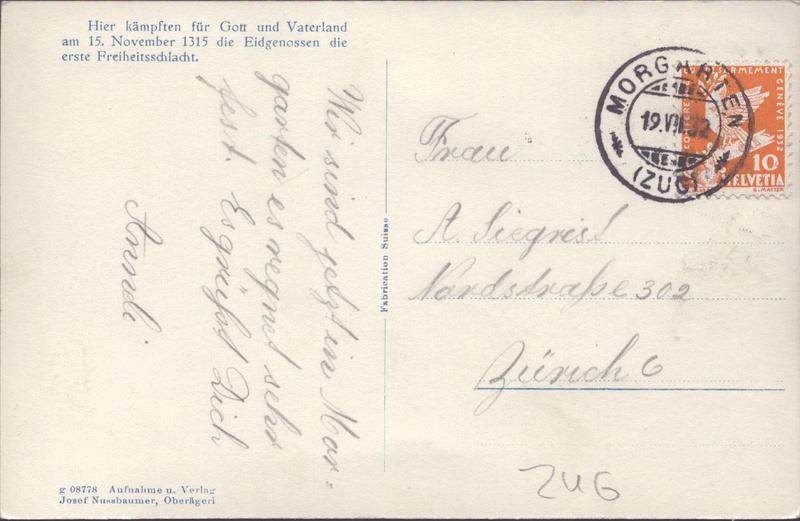 Hier kämpften für Gott und Vaterland
am 15. November 1315 die Eidgenossen die
erste Freiheitsschlacht.
Wir sind jetzt in Mor-
garten es regnet sehr
fest. Es grüßt Dich
Anndi
g 08778 Aufnahme u. Verlag
Josef Nussbaumer, Oberägeri
Fabrication Suisse
MORGARTEN
19.VII.32
(ZUG)
GENÈVE 1932
10
HELVETIA
Frau
A. Siegrist
Nordstraße 302
Zürich 6
ZUG